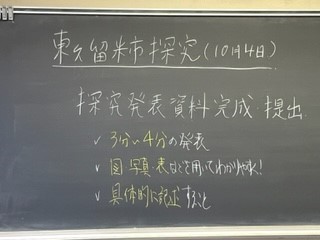 東久留米市探究(10月4日)
探究発表資料完成・提出
✓ 3分〜4分の発表
✓ 図・写真・表などを用いてわかりやすく!
✓ 具体的に記述すること